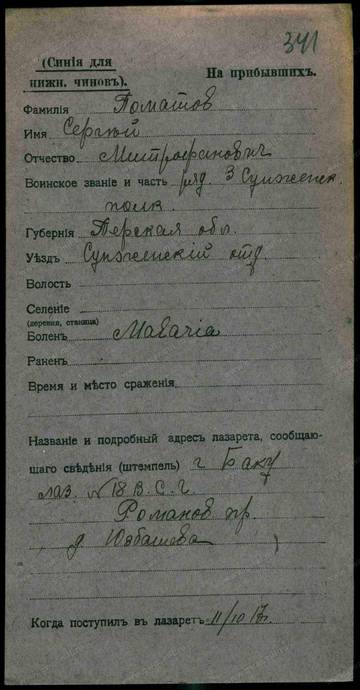 341
(Синія для
нижн. чиновъ).
На прибывшихъ.
Фамилія Поматов
Имя Сергѣй
Отчество Митрофанович
Воинское званіе и часть ряд. 3 Сунженск.
полк.
Губернія Терская обл.
Уѣздъ Сунженскій отд.
Волость
Селеніе
(деревня, станица)
Боленъ Малярія
Раненъ
Время и мѣсто сраженія
Названіе и подробный адресъ лазарета, сообщаю-
щаго свѣдѣнія (штемпель) г Баку
лаз. №18 В.С.Г.
Романов пр.
д Юзбашева
Когда поступилъ въ лазаретъ 11/10 17г.